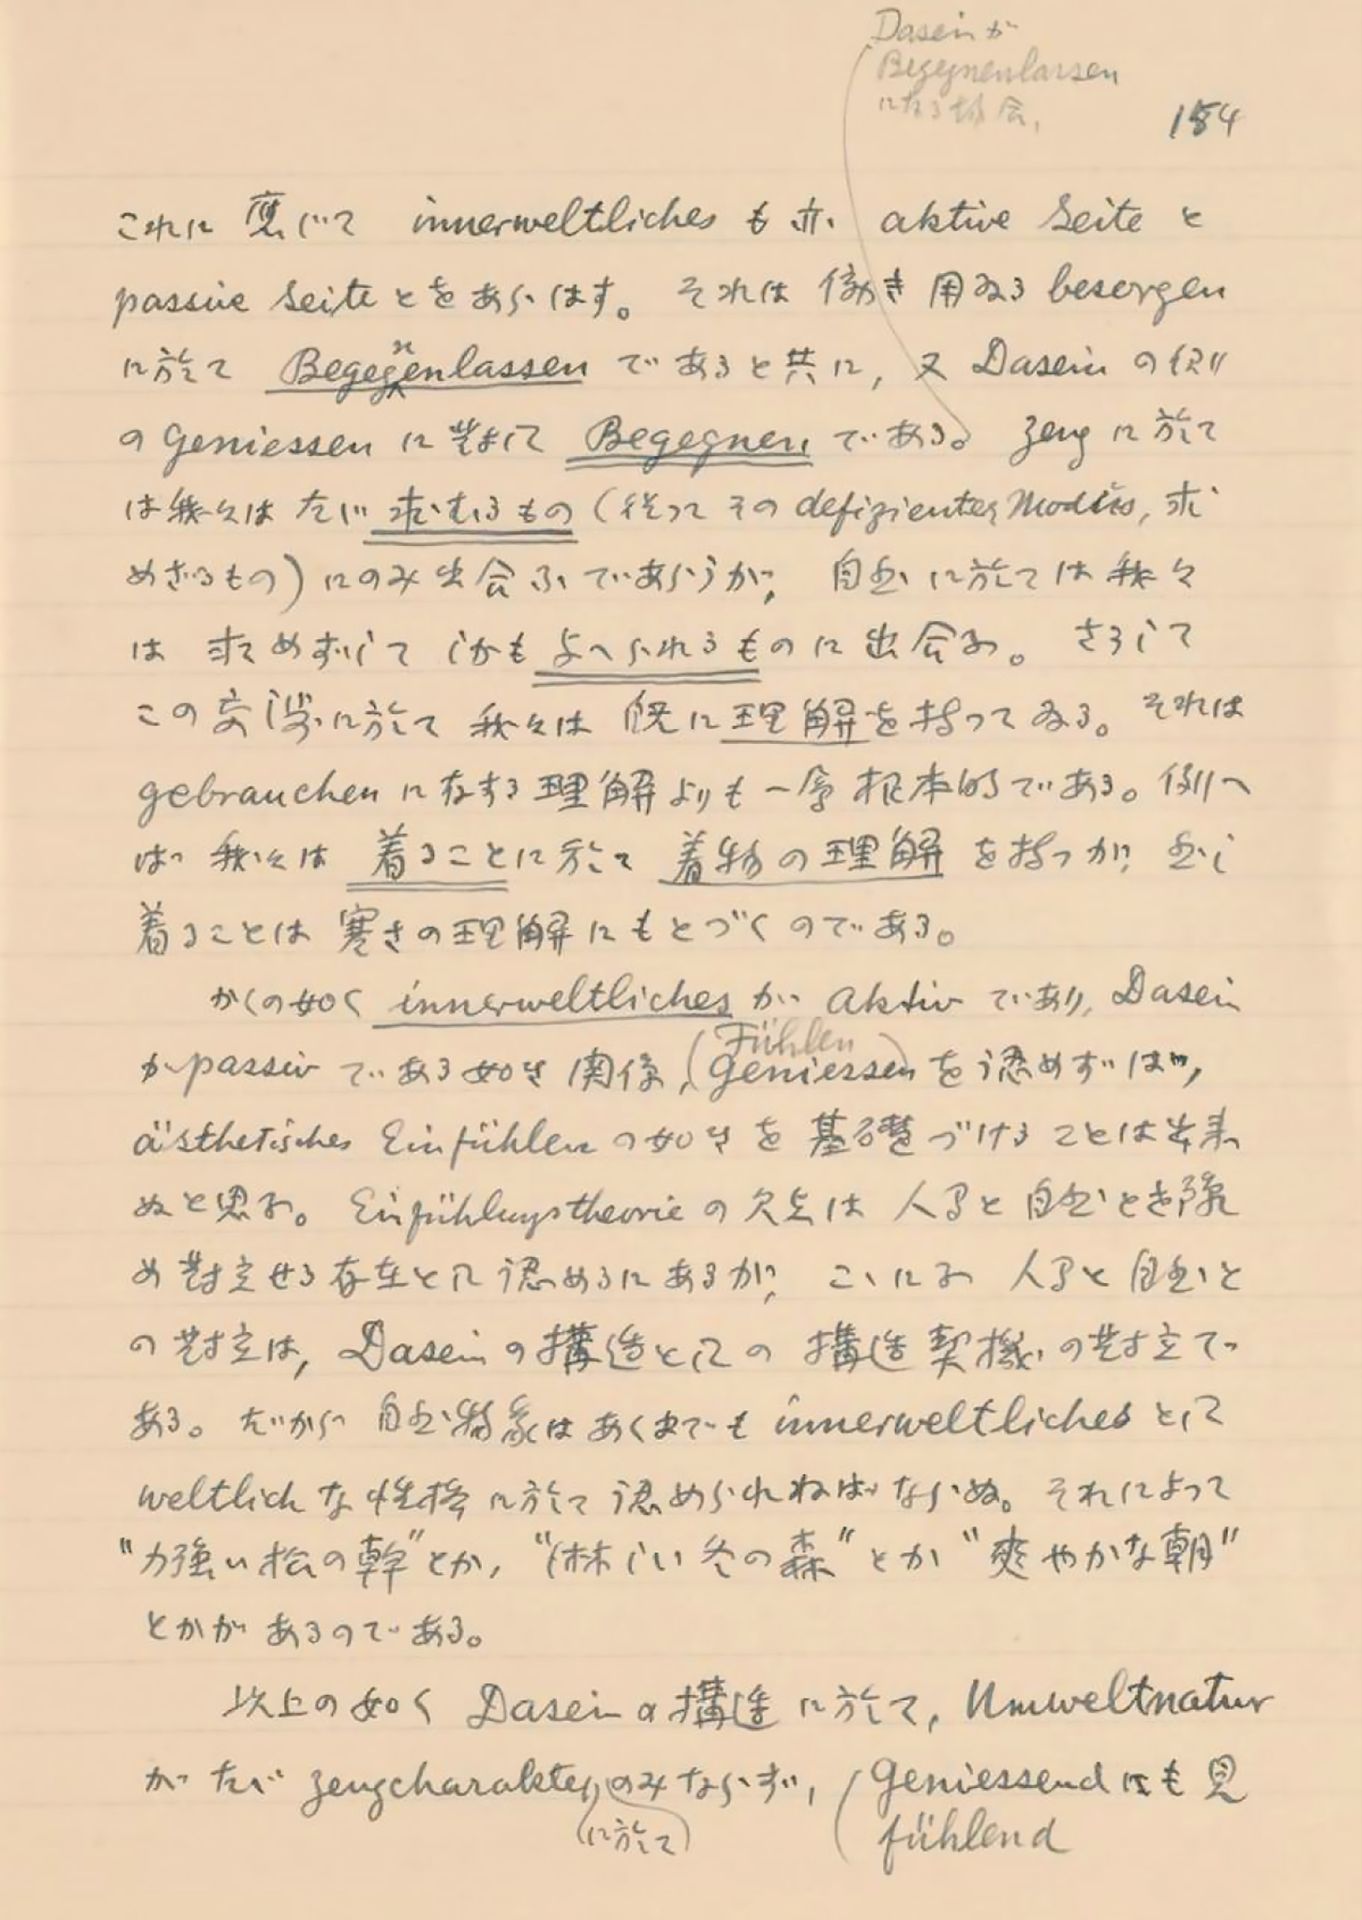 Dasein が
Begegnenlassen
になる場合、
184
これに應じて innerweltliches も亦 aktive Seite と
passive Seite とをあらはす。それは働き用ゐる besorgen
に於て Begegnenlassen であると共に, 又 Dasein の側
の Geniessen に対して Begegnen である。 Zeug に於て
は我々はたゞ求むるもの (従つてその defizienter Modus, 求
めざるもの) にのみ出会ふであらうが, 自然に於ては我々
は 求めずして しかも与へられるものに出会ふ。 さうして
この交渉に於て 我々は 既に理解を持つてゐる。 それは
gebrauchen に存する理解よりも一層根本的である。 例へ
ば 我々は 着ることに於て 着物の理解 を持つが, 然し
着ることは 寒さの理解にもとづくのである。
かくの如く innerweltliches が aktiv であり, Dasein
が passiv である如き関係, (Geniessen を認めずば,
Fühlen)
ästhetisches Einfühlen の如きを 基礎づけることは出来
ぬと思ふ。 Einfühlungstheorie の欠点は 人間と自然とを予
め対立せる存在として認めるにあるが, こゝにふ 人間と自然と
の対立は, Dasein の構造としての 構造契機の対立で
ある。 だから 自然物象はあくまでも innerweltliches として
weltlich な性格に於て 認められねばならぬ。 それによつて
“力強い松の幹”とか, “淋しい冬の森”とか “爽やかな朝”
とかがあるのである。
以上の如く Dasein の構造に於て, Umweltnatur
がたゞ Zeugcharakter のみならず, (Geniessend にも見
(に於て)
fühlend